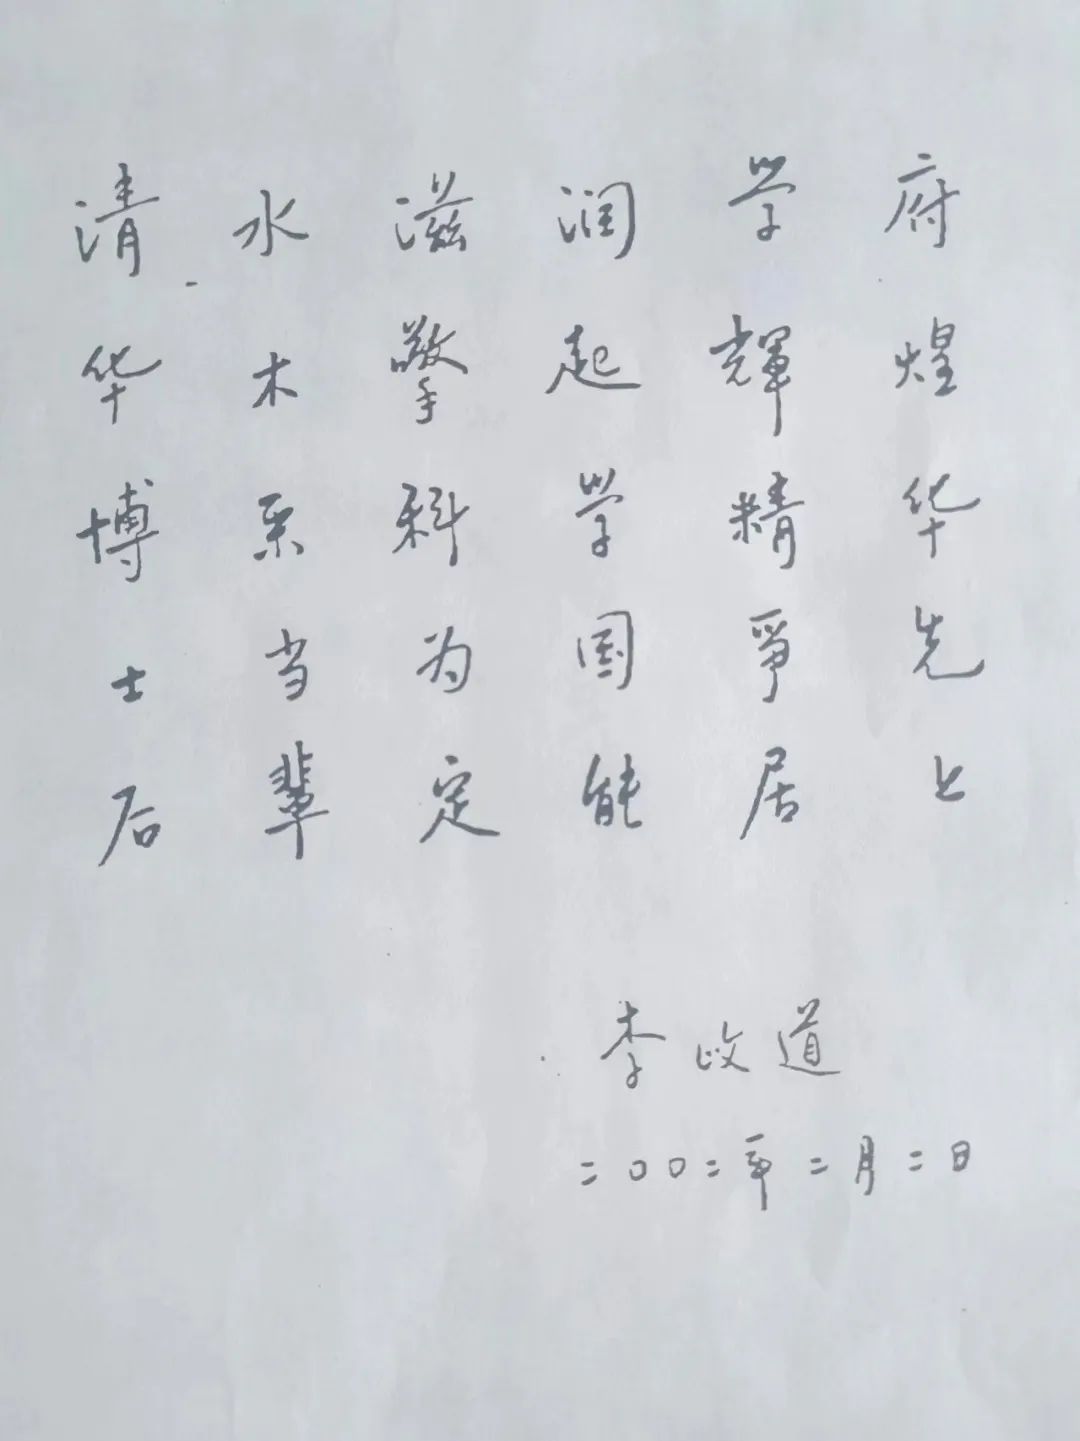 清水滋润学府
华木擎起輝煌
博系科学精华
士当为国争先
后辈定能居上
李政道
二〇〇二年二月二日